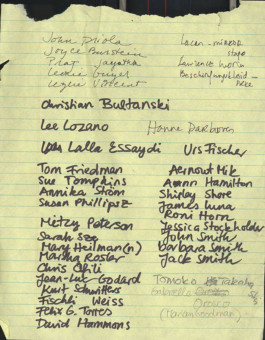 Joan Driola
Joyce Burstein
Prat Jayatha
Leonie Guyer
Leslie Vincent
Lacan - mirror
stage
Lawrence Weiner
Christian Bultanski
Lee Lozano
Hanne Darboven
Lalla Essaydi
Urs Fischer
Tom Friedman
Aernout Mik
Sue Tompkins
Annn Hamilton
Annika Ström
Shirley Shore
Susan Phillipsz
James Luna
Roni Horn
Mietzy Peterson
Jessica Stockholder
Sarah Sze
John Smith
Mary Heilman(n)
Barbara Smith
Martha Rosler
Jack Smith
Chris Ofili
Jean-Luc Godard
Tomoko Takahashi
Kurt Schwitters
Gabrielle
Fischli Weiss
Orozco
Felix G. Torres
(Marian Goodman)
David Hammons